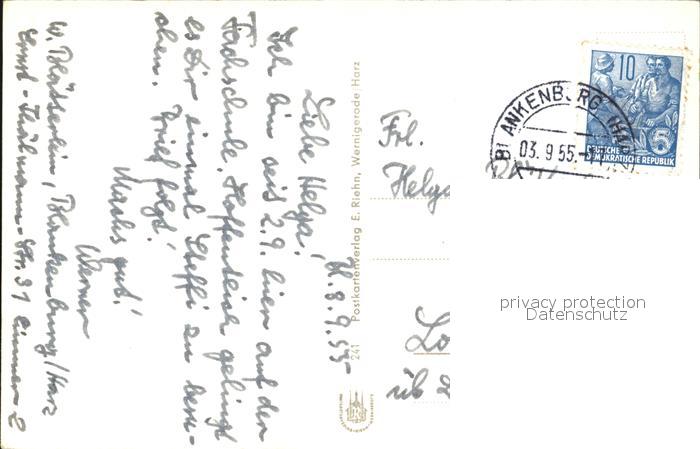 Bl. 8.9.55
Liebe Helga!
Ich bin seit 2.9. hier auf der
Fachschule. Hoffentlich gelingt
es Dir einmal Steffi zu besu-
chen. Brief folgt!
Machs gut!
Werner
W. Blässerlein, Blankenburg/Harz
Ernst-Thälmann-Str. 31 Zimmer 2
241 Postkartenverlag E. Riehn, Wernigerode Harz
Frl.
Helga
Lo
üb
10
5
DEUTSCHE
DEMOKRATISCHE REPUBLIK
BLANKENBURG (HARZ)
03.9.55.
privacy protection
Datenschutz